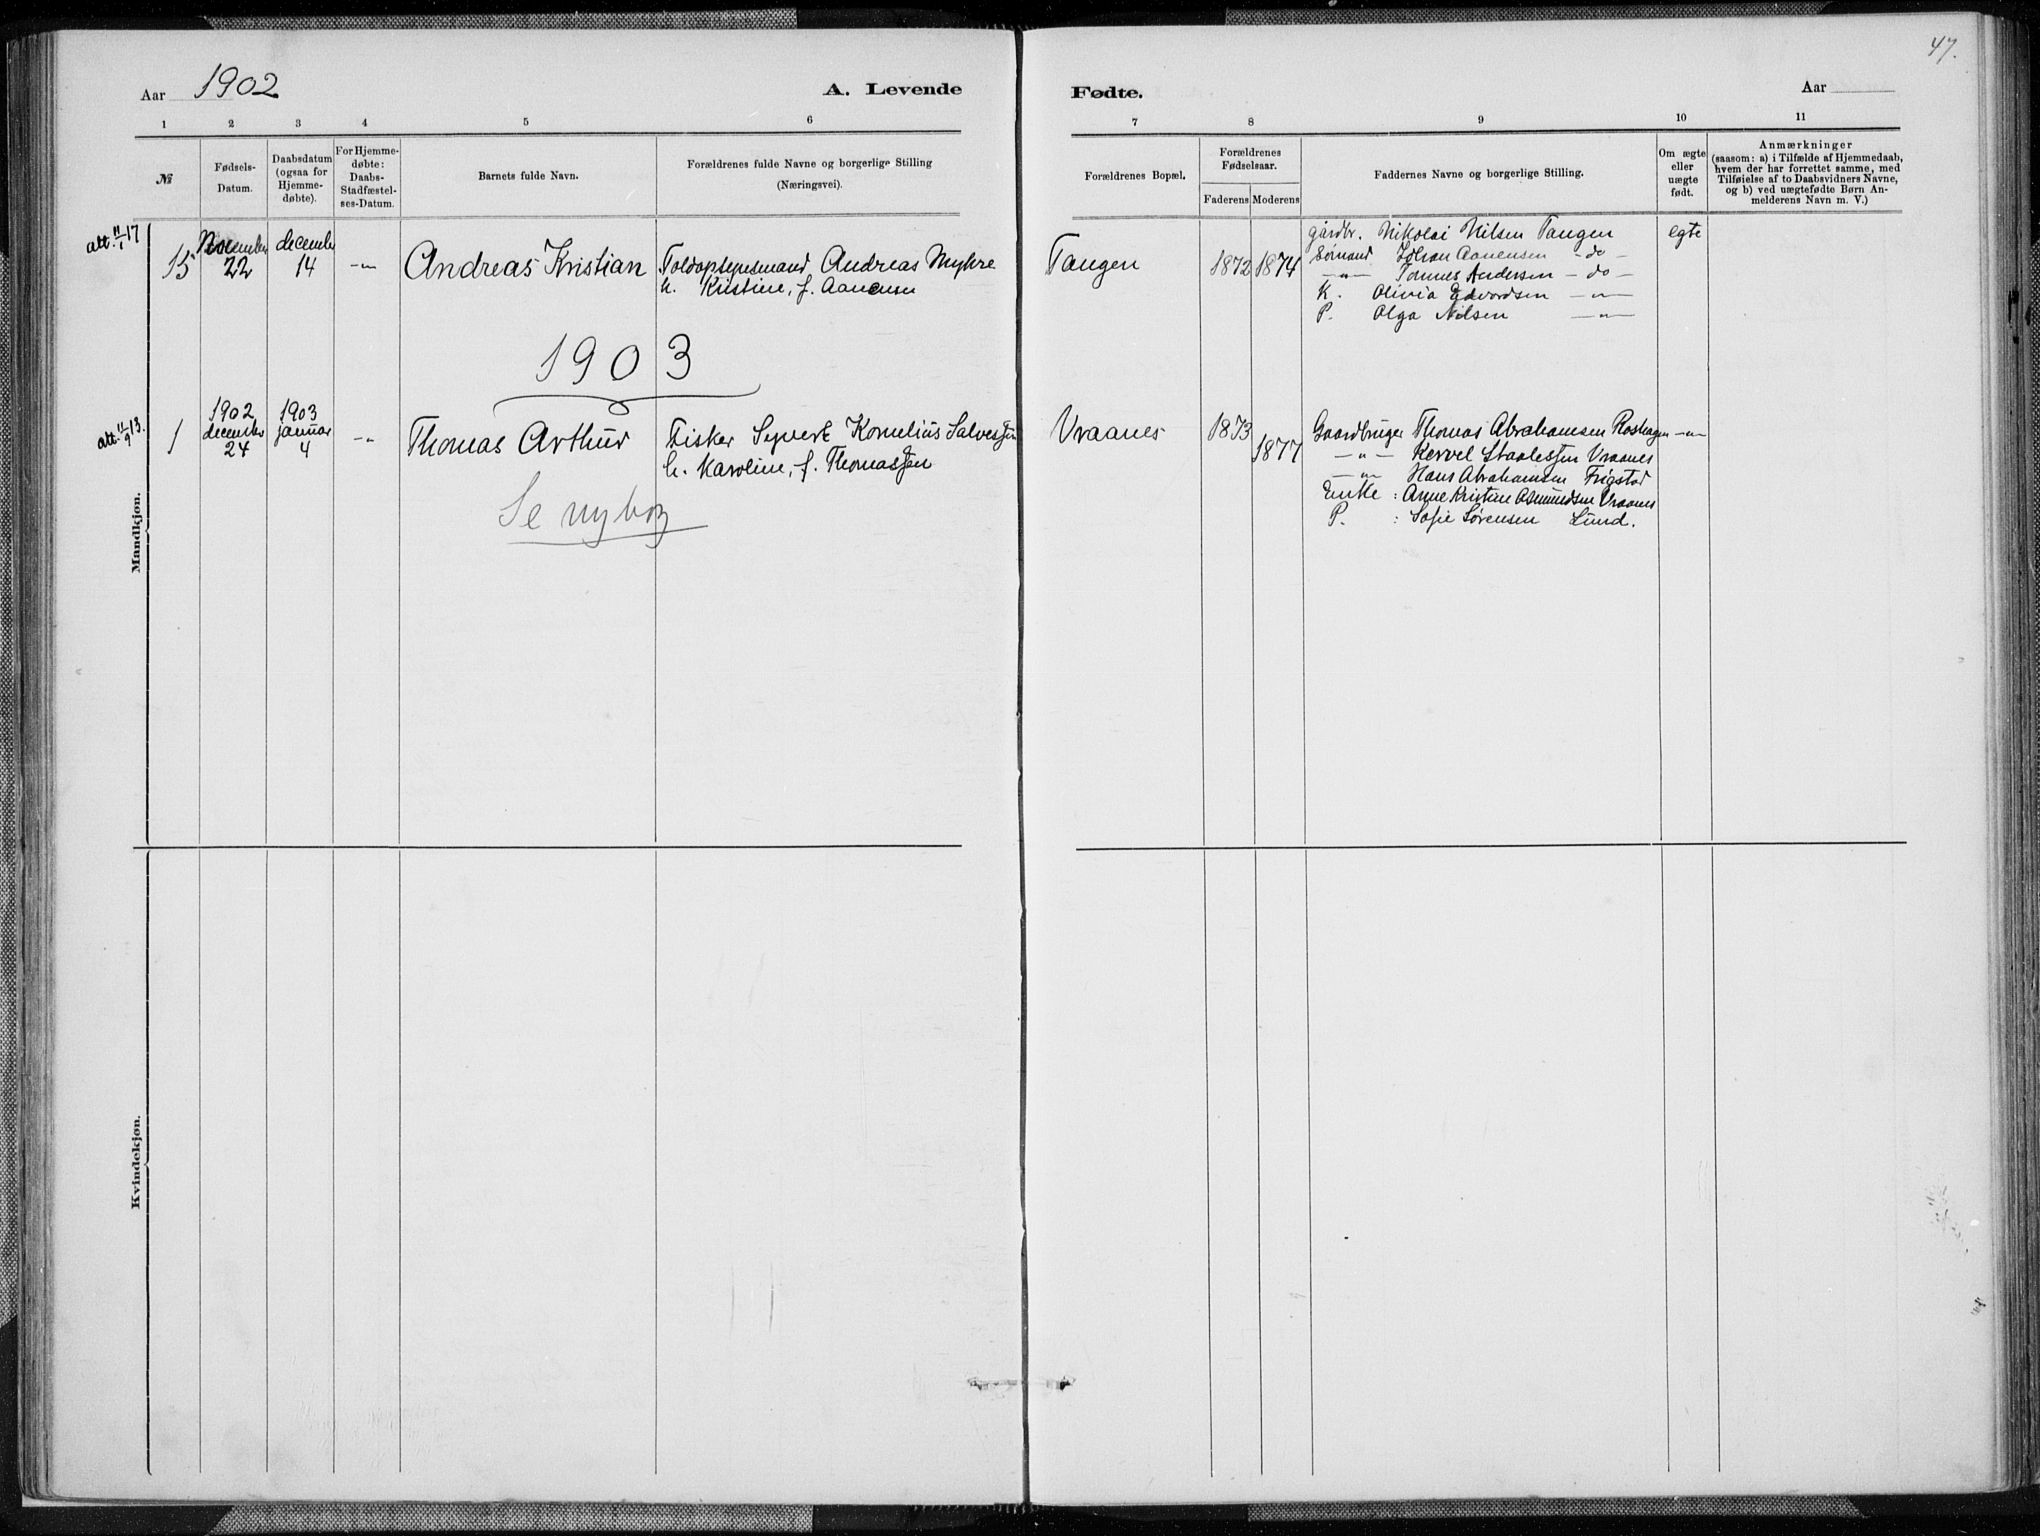 47.
Aar 1902
A. Levende
Fødte.
Aar
1 2 3 4 5 6
7 8 9 10 11
№
Fødsels-
Datum.
Daabsdatum
(ogsaa for
Hjemme-
døbte).
For Hjemme-
døbte:
Daabs-
Stadfæstel-
ses-Datum.
Barnets fulde Navn.
Forældrenes fulde Navne og borgerlige Stilling
(Næringsvei).
Forældrenes Bopæl.
Forældrenes
Fødselsaar.
Faderens Moderens
Faddernes Navne og borgerlige Stilling.
Om ægte
eller
uægte
født.
Anmærkninger
(saasom: a) i Tilfælde af Hjemmedaab,
hvem der har forrettet samme, med
Tilføielse af to Daabsvidners Navne,
og b) ved uægtefødte Børn An-
melderens Navn m. V.)
Mandkjøn.
att. 11/1 17
15
November
22
december
14
-"-
Andreas Kristian
Toldopsynsmand Andreas Myhre
h. Kristine, f. Aanensen
Tangen
1872
1874
gårdbr. Nikolai Nilsen Tangen
Sømand Johan Aanensen - do -
-"- Tønnes Andersen - do -
K. Olivia Edvardsen -"-
P. Olga Nilsen -"-
egte
1903
att. 11/9 13.
1
1902
december
24
1903
januar
4
-"-
Thomas Arthur
Fisker Syvert Kornelius Salvessen
h. Karoline, f. Thomassen
Vraanes
1873
1877
Gaardbruger Thomas Abrahamsen
-"- Staalessen Vraanes
-"- Hans Abrahamsen Frigstad
Enke : Anne Kristine Asmundsen Vraanes
P. : Sofie Sørensen Lund.
-"-
Se ny bog
Kvindekjøn.